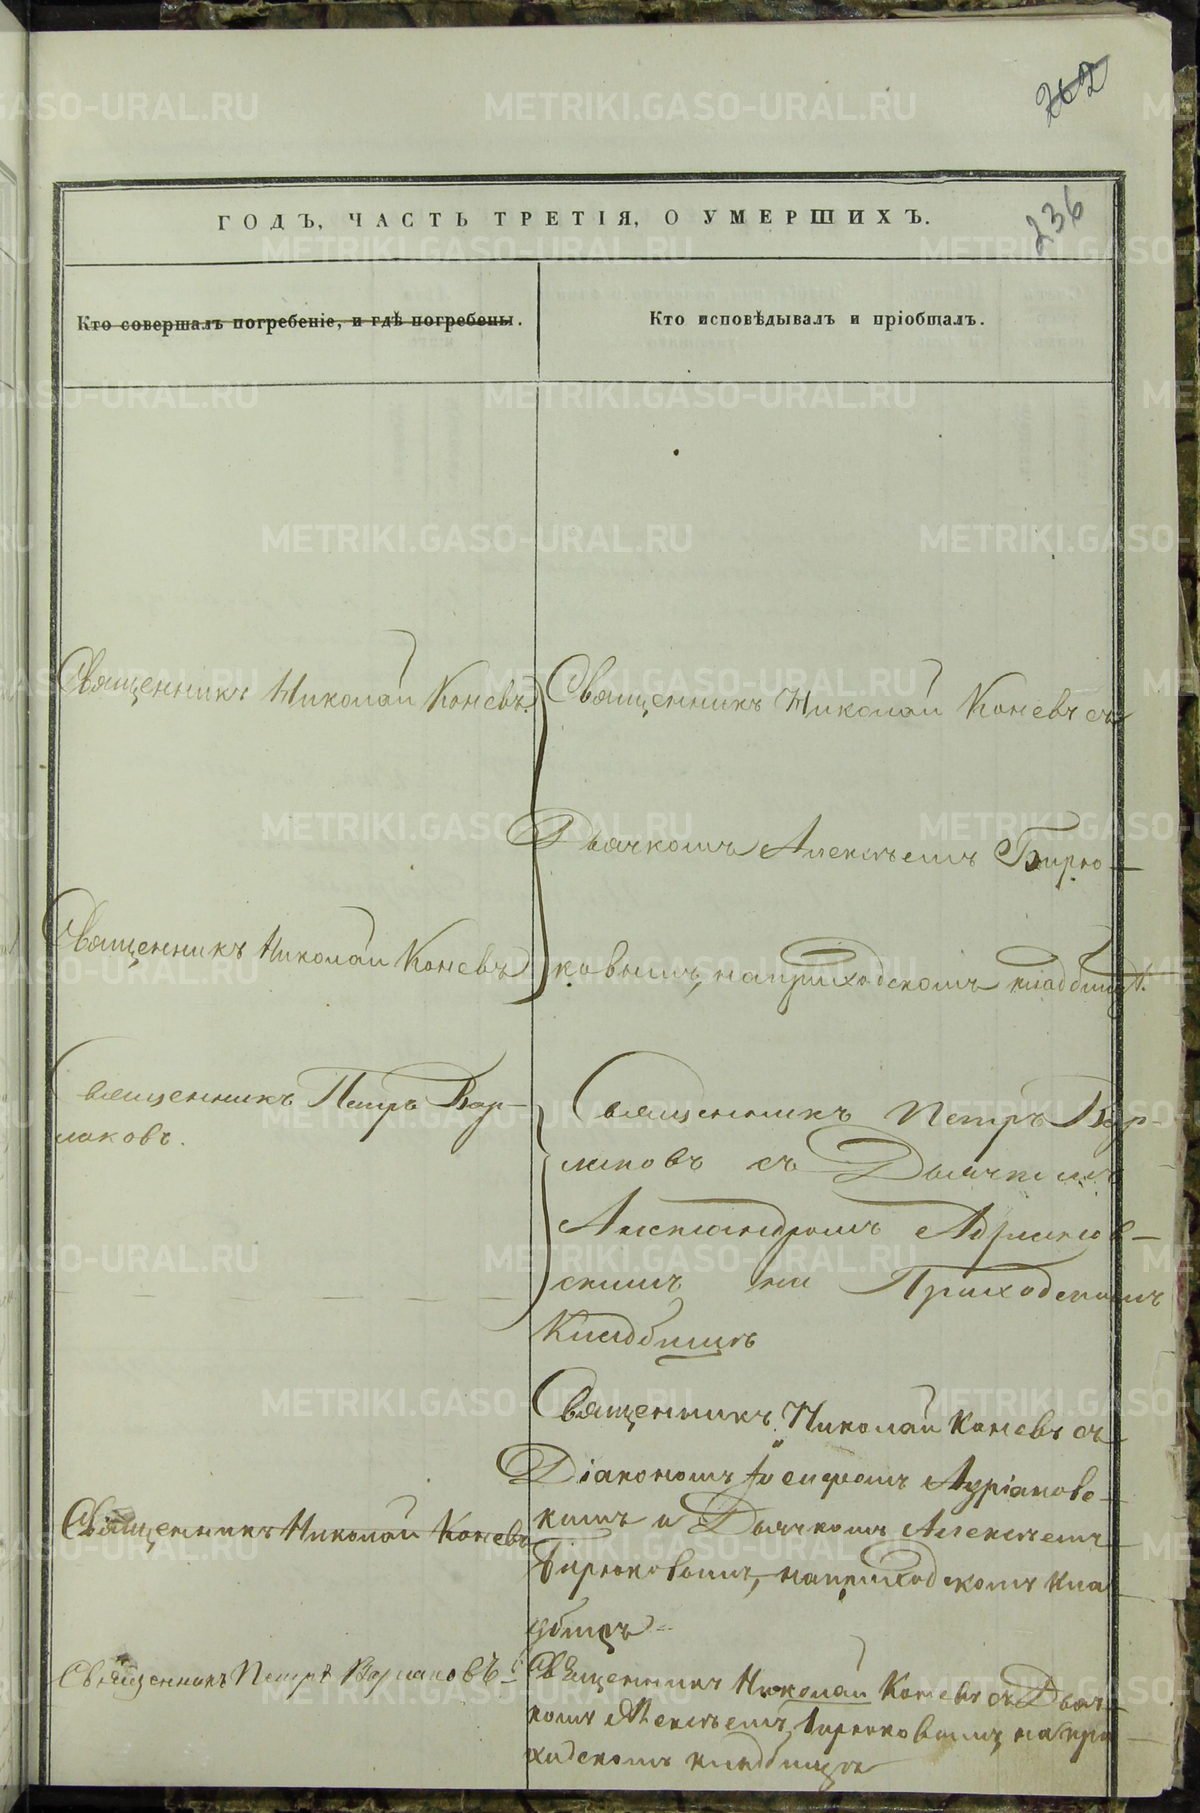 262
236
ГОДЪ, ЧАСТЬ ТРЕТІЯ, О УМЕРШИХЪ.
Кто совершалъ погребеніе, и гдѣ погребены.
Кто исповѣдывалъ и пріобщалъ.
Священникъ Николай Коневъ.
Священникъ Николай Коневъ съ
Дьячкомъ Алексѣемъ Бирю-
Священникъ Николай Коневъ
ковымъ, на приходскомъ кладбищѣ.
Священникъ Петръ Вар-
лаковъ.
Священникъ Петръ Вар-
лаковъ съ Дьячкомъ
Александромъ Адріанов-
скимъ на Приходскомъ
Кладбищѣ
Священникъ Николай Коневъ съ
Діакономъ Іосифомъ Адріановс-
кимъ и Дьячкомъ Алексѣемъ
Бирюковымъ, на приходскомъ кла-
дбищѣ
Священникъ Николай Коневъ
Священникъ Петръ Варлаковъ
Священникъ Николай Коневъ съ Дьяч-
комъ Алексѣемъ Бирюковымъ на при-
ходскомъ кладбищѣ
METRIKI.GASO-URAL.RU